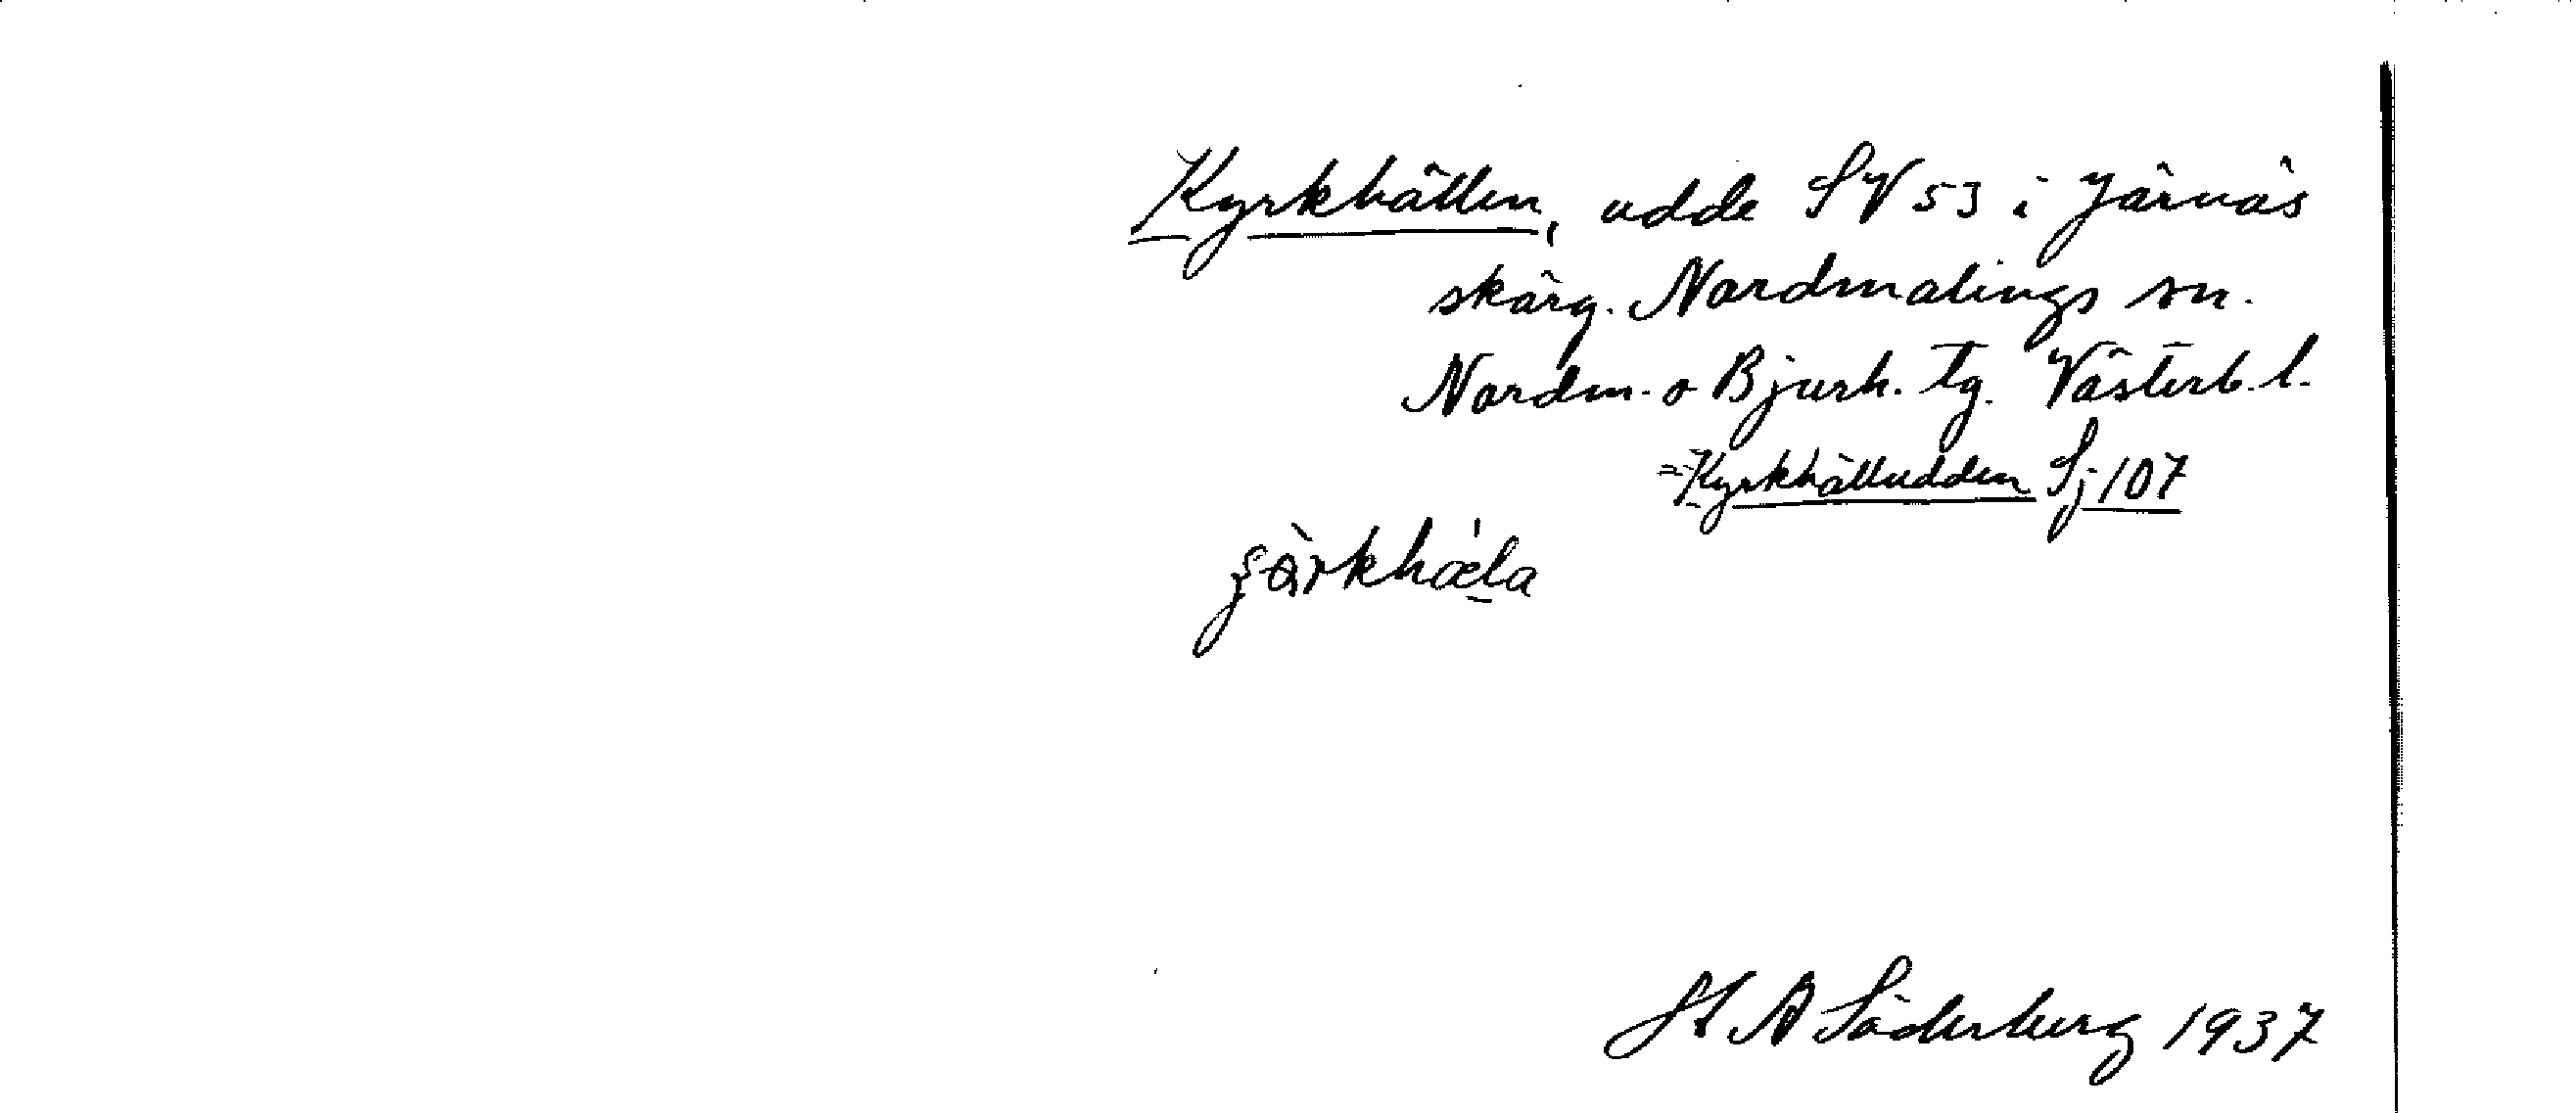 Kyrkhällen, udde SV 53 i Järnäs
skärg. Nordmalings sn.
Nordm. o Bjurh. tg. Västerb. l.
=Kyrkhälludden Sj 107
Söderberg 1937